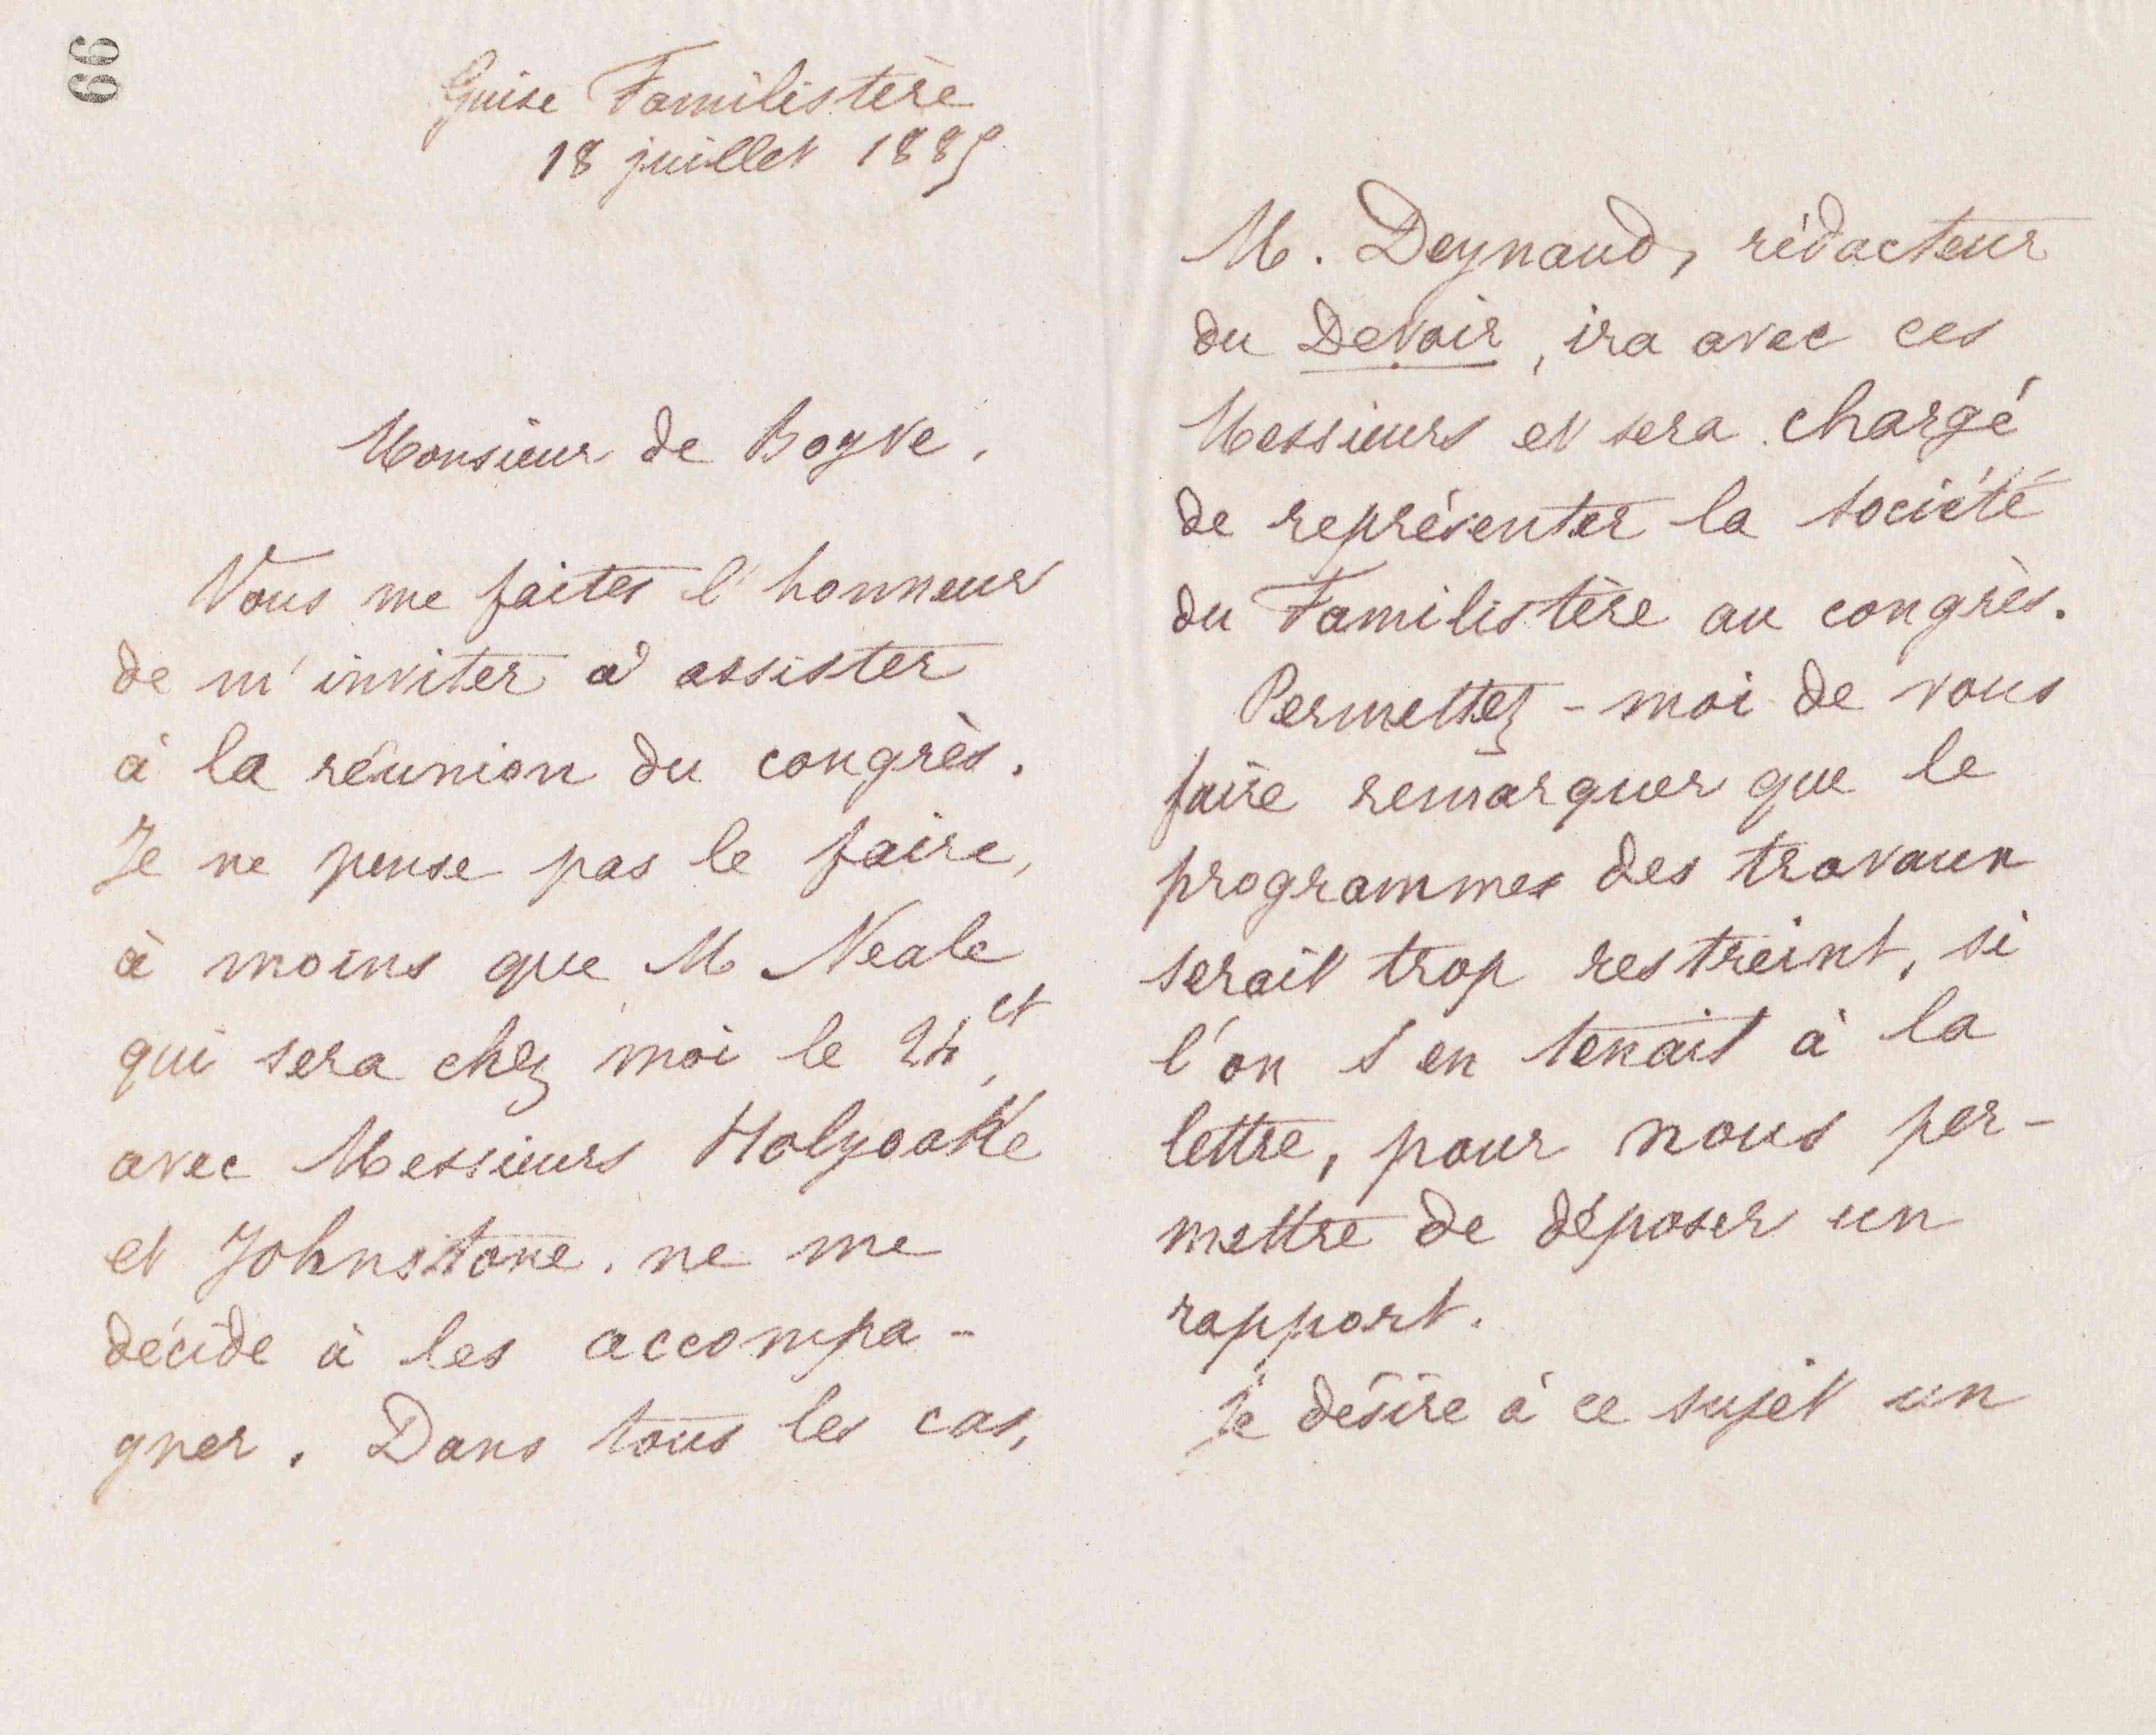 66
Guise Familistère
18 juillet 1885
Monsieur de Boyve,
Vous me faites l'honneur
de m'inviter à assister
à la réunion du congrès.
Je ne pense pas le faire,
à moins que M Neale
qui sera chez moi le 24, et
avec Messieurs Holyoake
et Johnstone, ne me
décide à les accompa-
gner. Dans tous les cas,
M. Deynaud, rédacteur
du Devoir, ira avec ces
Messieurs et sera chargé
de représenter la société
du Familistère au congrès.
Permettez-moi de vous
faire remarquer que le
programmes des travaux
serait trop restreint, si
l'on s'en tenait à la
lettre, pour nous per-
mettre de déposer un
rapport.
Je désire à ce sujet un